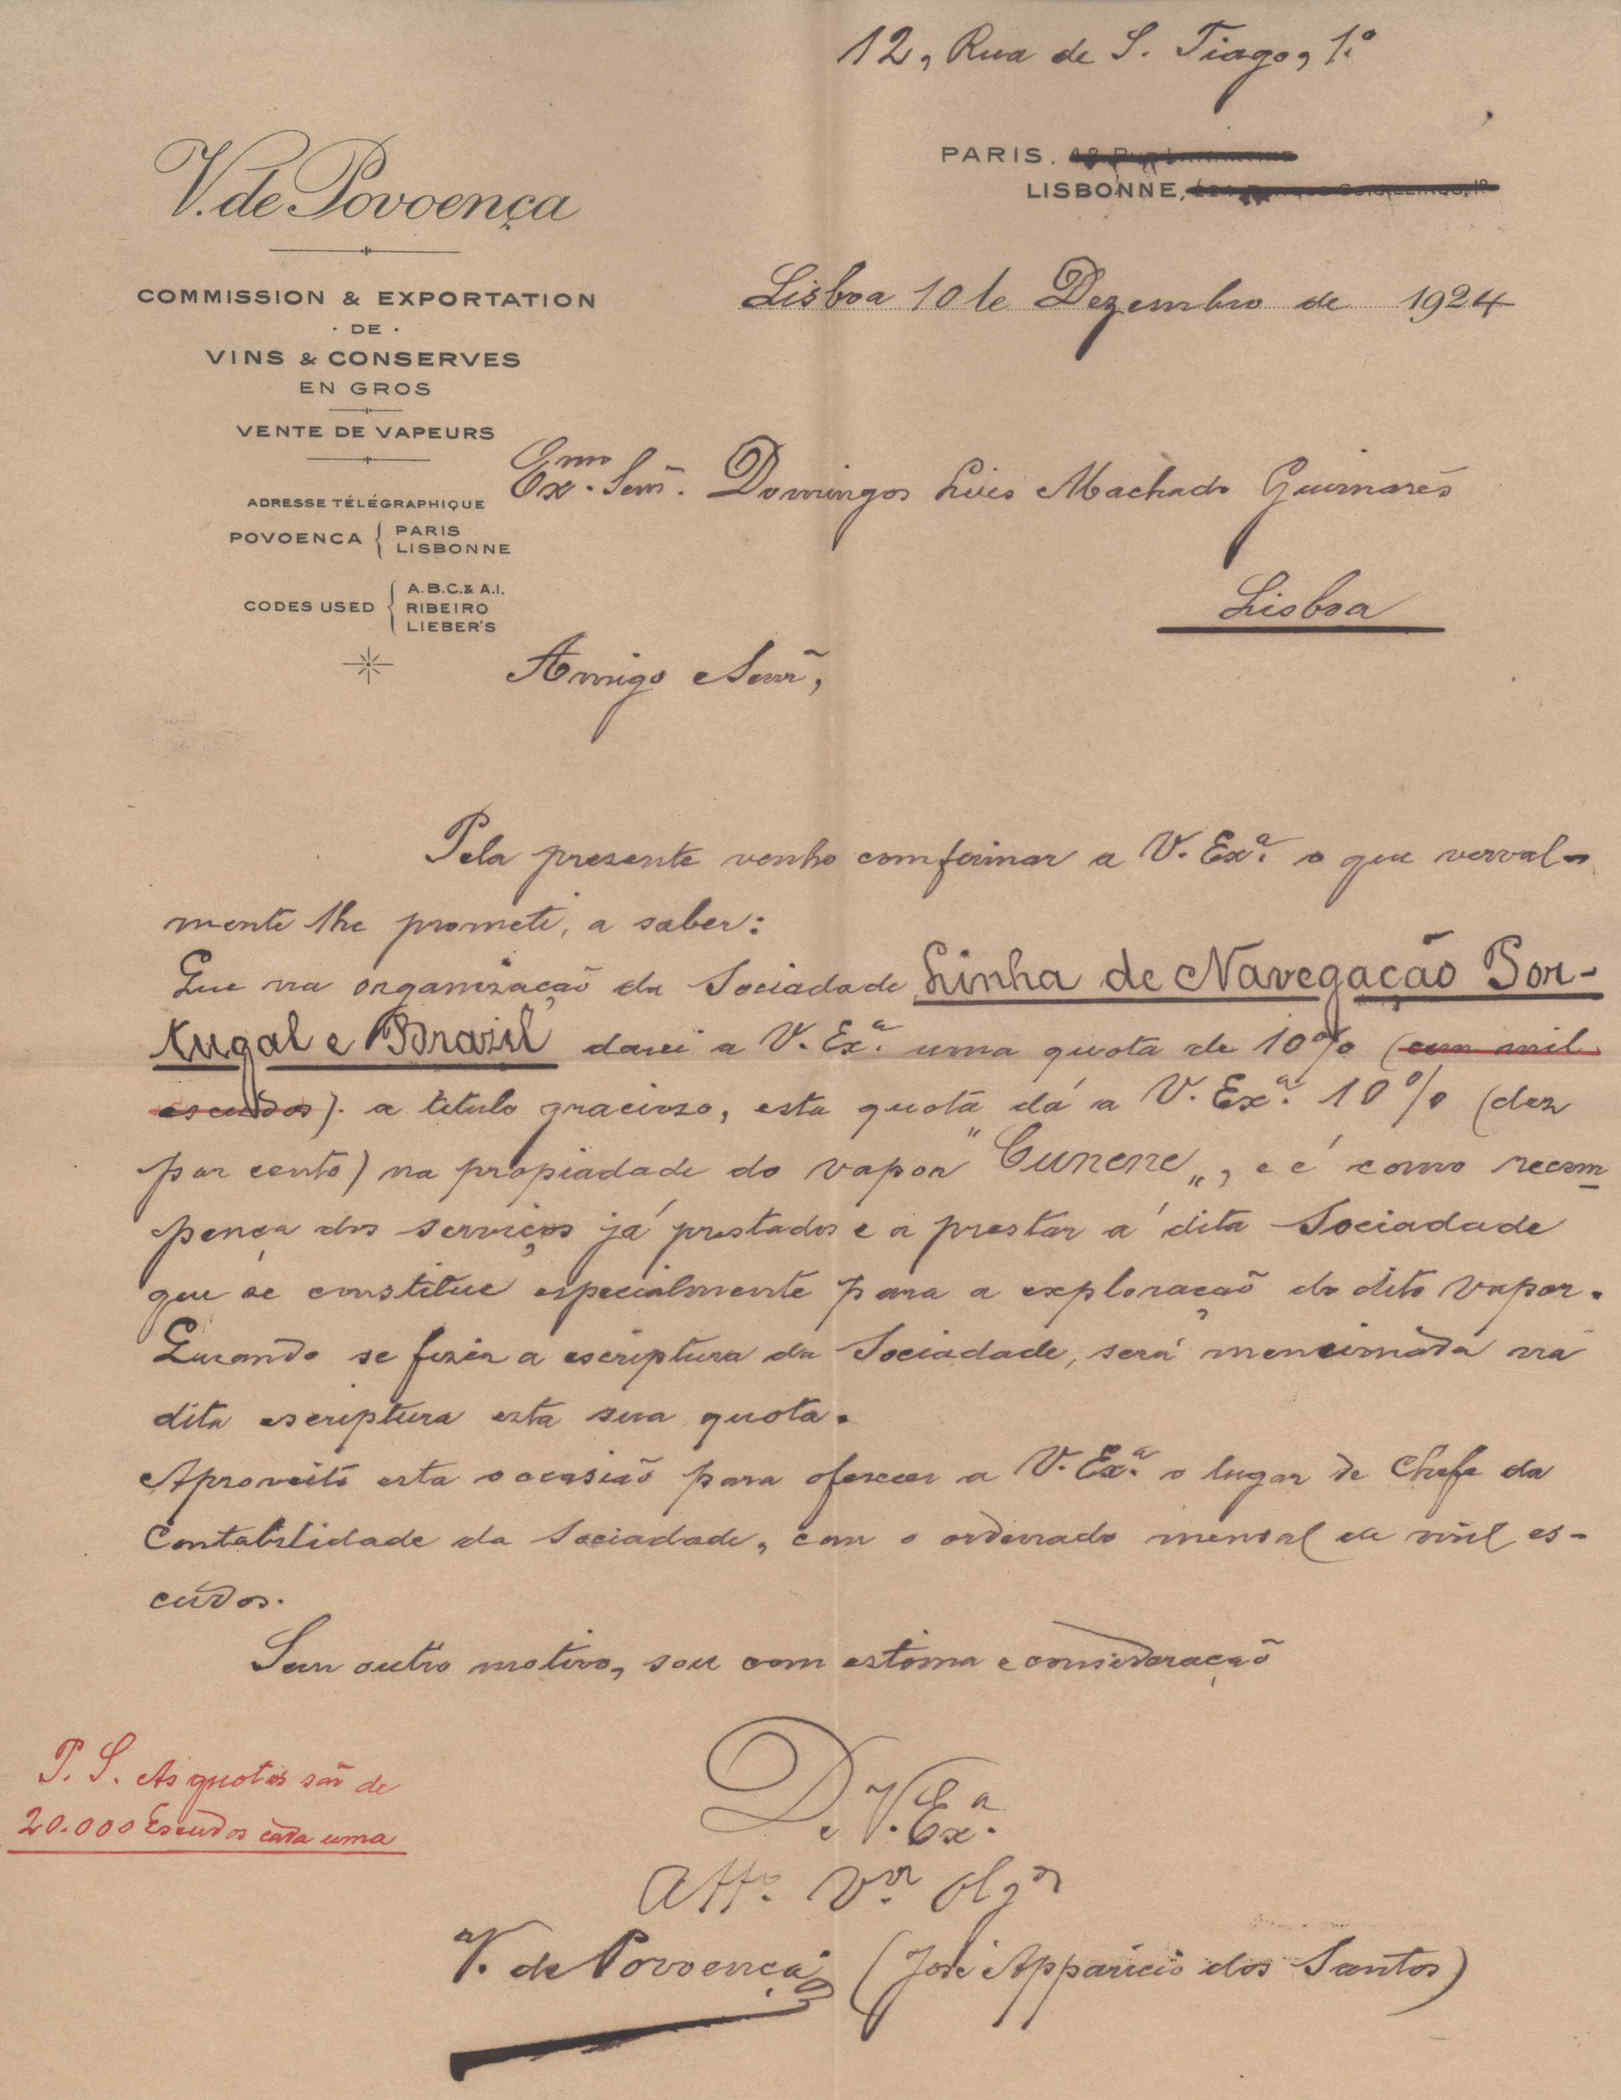 12, Rua de S. Tiago, 1.º
PARIS.
LISBONNE,
V. de Povoença
COMMISSION & EXPORTATION
· DE ·
VINS & CONSERVES
EN GROS
VENTE DE VAPEURS
ADRESSE TÉLÉGRAPHIQUE
POVOENCA { PARIS
LISBONNE
CODES USED { A.B.C. & A.I.
RIBEIRO
LIEBER'S
Lisboa 10 de Dezembro de 1924
Exmo. Senr. Domingos Luis Machado Guimarães
Lisboa
Amigo e Senr,
Pela presente venho comfirmar a V. Exª. o que verval-
mente lhe prometi, a saber:
Que na organização da Sociadade Linha de Navegação Por-
tugal e Brazil darei a V. Exª. uma quota de 10% (cem mil
escudos). a titulo gracioso, esta quota dá a V. Exª. 10% (dez
por cento) na propiadade do vapor "Cunene„, e é como recom
pença dos serviços já prestados e a prestar á dita Sociadade
que se constitue especialmente para a exploração do dito vapor.
Quando se fizer a escriptura da Sociadade, será mencionada na
dita escriptura esta sua quota.
Aproveito esta occasião para oferecer a V. Exª. o lugar de Chefe da
Contabilidade da Sociadade, com o ordenado mensal de mil es-
cudos.
Sem outro motivo, sou com estima e consideração
P. S. As quotas são de
20.000 Escudos cada uma
De V. Exª.
Attº. Vor. Obgº
V. de Povoença (José Apparicio dos Santos)